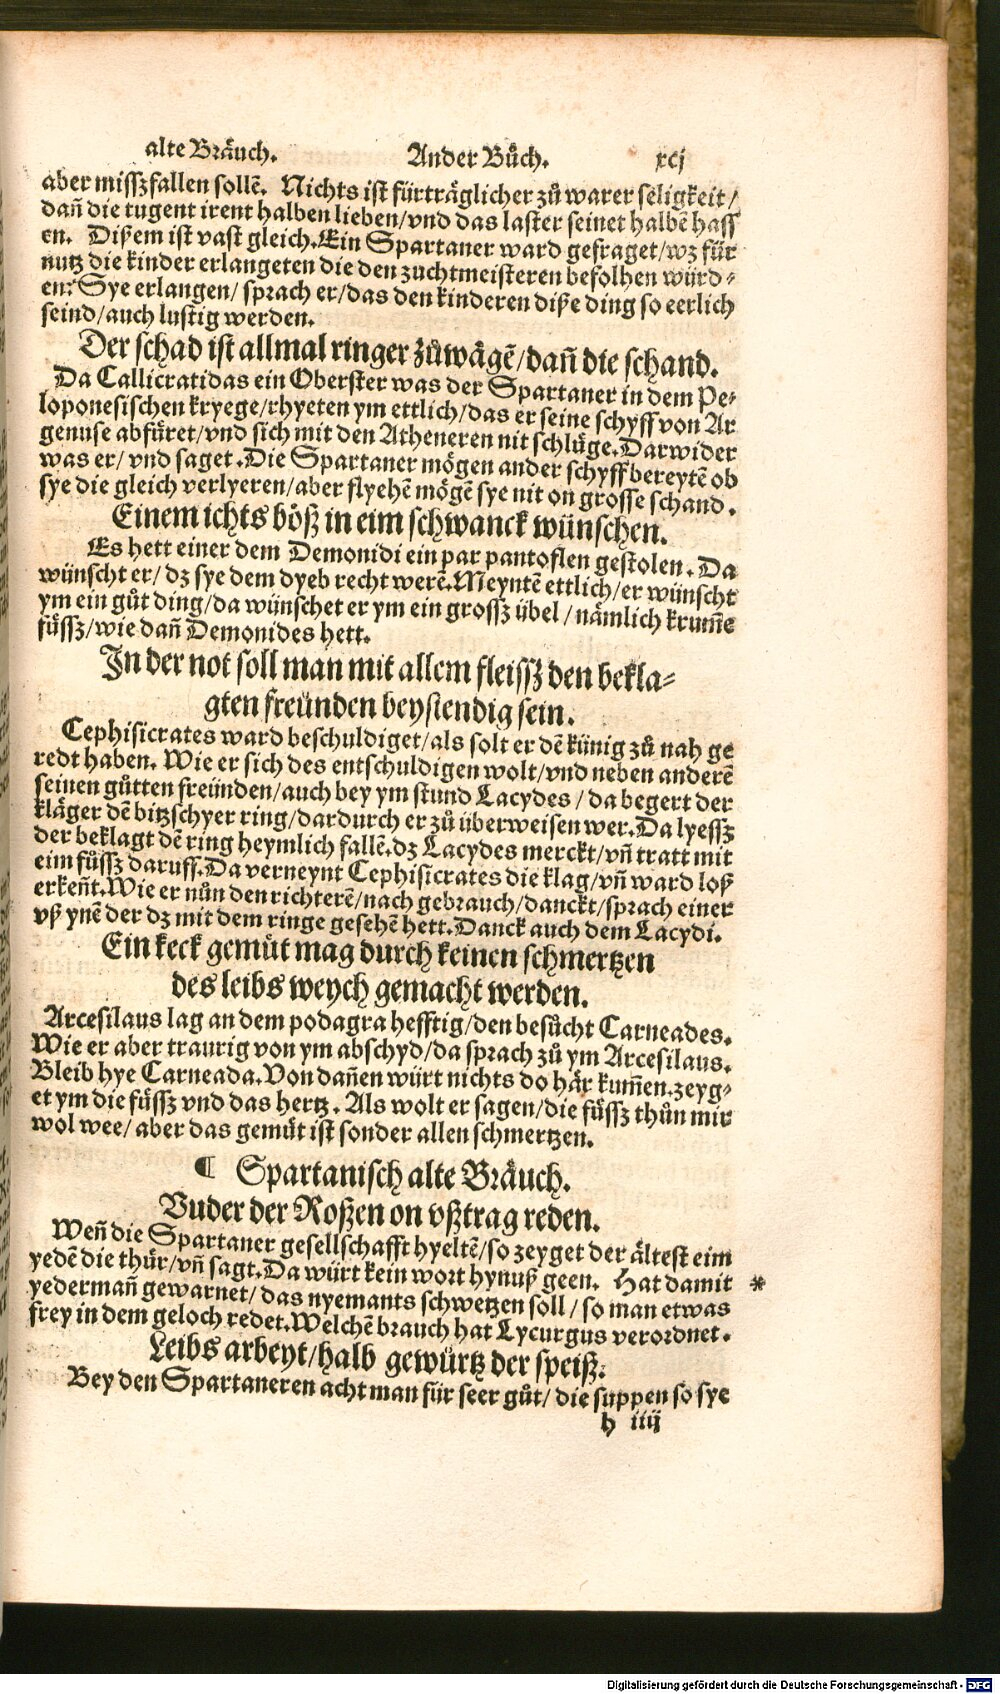 alte Bräuch. Ander Bůch. xcj
aber misszfallen sollē. Nichts ist fürträglicher zů warer seligkeit/
dañ die tugent irent halben lieben/vnd das laster seinet halbē hass
en. Dißem ist vast gleich. Ein Spartaner ward gefraget/wz für
nutz die kinder erlangeten die den zuchtmeisteren befolhen würd⸗
en: Sye erlangen/ sprach er/das den kinderen diße ding so eerlich
seind/auch lustig werden.
Der schad ist allmal ringer zůwägē/dañ die schand.
Da Callicratidas ein Oberster was der Spartaner in dem Pe⸗
loponesischen kryege/rhyeten ym ettlich/das er seine schyff von Ar
genuse abfüret/vnd sich mit den Atheneren nit schlüge. Darwider
was er/ vnd saget. Die Spartaner mögen ander schyff bereytē ob
sye die gleich verlyeren/aber flyehē mögē sye nit on grosse schand.
Einem ichts böß in eim schwanck wünschen.
Es hett einer dem Demonidi ein par pantoflen gestolen. Da
wünscht er/ dz sye dem dyeb recht werē. Meyntē ettlich/er wünscht
ym ein gůt ding/da wünschet er ym ein grossz übel/nämlich krum̄e
füssz/wie dañ Demonides hett.
In der not soll man mit allem fleissz den bekla⸗
gten freünden beystendig sein.
Cephisicrates ward beschuldiget/als solt er dē künig zů nah ge
redt haben. Wie er sich des entschuldigen wolt/vnd neben anderē
seinen gůtten freünden/auch bey ym stund Lacydes/ da begert der
kläger dē bitzschyer ring/dardurch er zů überweisen wer. Da lyessz
der beklagt dē ring heymlich fallē. dz Lacydes merckt/vñ tratt mit
eim fůssz daruff. Da verneynt Cephisicrates die klag/vñ ward loß
erkeñt. Wie er nůn den richterē/nach gebrauch/danckt/sprach einer
vß ynē der dz mit dem ringe gesehē hett. Danck auch dem Lacydi.
Ein keck gemüt mag durch keinen schmertzen
des leibs weych gemacht werden.
Arcesilaus lag an dem podagra hefftig/den besůcht Carneades.
Wie er aber traurig von ym abschyd/da sprach zů ym Arcesilaus.
Bleib hye Carneada. Von dañen würt nichts do här kum̄en. zeyg⸗
et ym die füssz vnd das hertz. Als wolt er sagen/die füssz thůn mir
wol wee/ aber das gemüt ist sonder allen schmertzen.
¶ Spartanisch alte Bräuch.
Vnder der Roßen on vßtrag reden.
Weñ die Spartaner gesellschafft hyeltē/so zeyget der ältest eim
yedē die thür/vñ sagt. Da würt kein wort hynuß geen. Hat damit *
yedermañ gewarnet/das nyemants schwetzen soll/so man etwas
frey in dem geloch redet. Welchē brauch hat Lycurgus verordnet.
Leibs arbeyt/halb gewürtz der speiß.
Bey den Spartaneren acht man für seer gůt/ die suppen so sye
h iiij
Digitalisierung gefördert durch die Deutsche Forschungsgemeinschaft - DFG